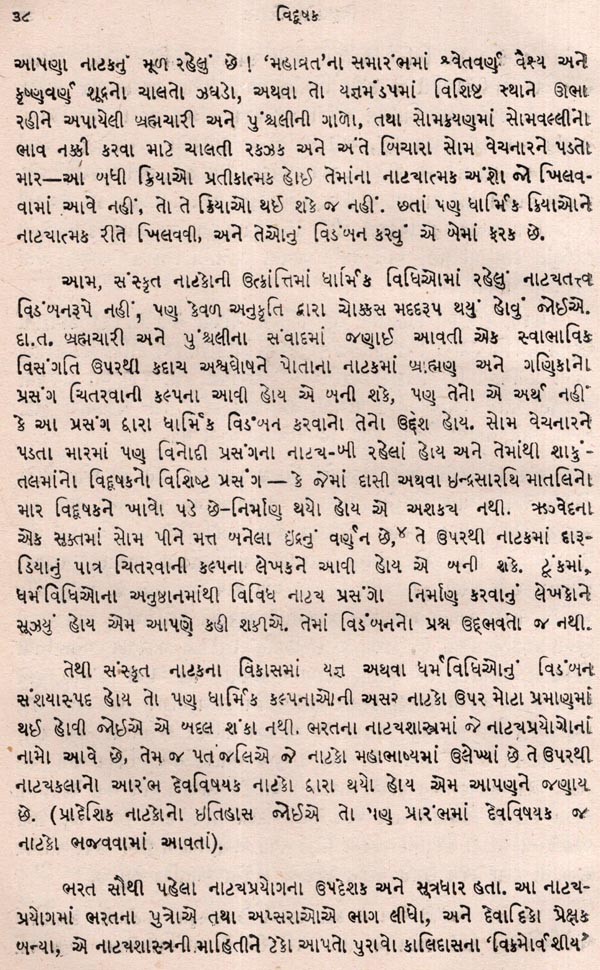 ૩૮
વિદૂષક
આપણા નાટકનું મૂળ રહેલું છે ! ‘મહાવ્રત’ના સમારંભમાં શ્વેતવર્ણ વૈશ્ય અને
કૃષ્ણવર્ણ શૂદ્રનો ચાલતો ઝઘડો, અથવા તો યજ્ઞમંડપમાં વિશિષ્ટ સ્થાને ઊભા
રહીને અપાયેલી બ્રહ્મચારી અને પુંશ્ચલીની ગાળો, તથા સોમક્રયણમાં સોમવલ્લીનો
ભાવ નક્કી કરવા માટે ચાલતી રકઝક અને અંતે બિચારા સોમ વેચનારને પડતો
માર—આ બધી ક્રિયાઓ પ્રતીકાત્મક હોઈ તેમાંના નાટ્યાત્મક અંશો જો ખિલવ-
વામાં આવે નહીં, તો તે ક્રિયાઓ થઈ શકે જ નહીં. છતાં પણ ધાર્મિક ક્રિયાઓને
નાટ્યાત્મક રીતે ખિલવવી, અને તેઓનું વિડંબન કરવું એ બેમાં ફરક છે.
આમ, સંસ્કૃત નાટકોની ઉત્ક્રાંતિમાં ધાર્મિક વિધિઓમાં રહેલું નાટ્યતત્ત્વ
વિડંબનરૂપે નહીં, પણ કેવળ અનુકૃતિ દ્વારા ચોક્કસ મદદરૂપ થયું હોવું જોઈએ.
દા.ત. બ્રહ્મચારી અને પુંશ્ચલીના સંવાદમાં જણાઈ આવતી એક સ્વાભાવિક
વિસંગતિ ઉપરથી કદાચ અશ્વઘોષને પોતાના નાટકમાં બ્રાહ્મણ અને ગણિકાનો
પ્રસંગ ચિતરવાની કલ્પના આવી હોય એ બની શકે, પણ તેનો એ અર્થ નહીં
કે આ પ્રસંગ દ્વારા ધાર્મિક વિડંબન કરવાનો તેનો ઉદ્દેશ હોય. સોમ વેચનારને
પડતા મારમાં પણ વિનોદી પ્રસંગના નાટ્ય-બી રહેલાં હોય અને તેમાંથી શાકું-
તલમાંનો વિદૂષકનો વિશિષ્ટ પ્રસંગ — કે જેમાં દાસી અથવા ઇન્દ્રસારથિ માતલિનો
માર વિદૂષકને ખાવો પડે છે–નિર્માણ થયો હોય એ અશક્ય નથી. ઋગ્વેદના
એક સુક્તમાં સોમ પીને મત્ત બનેલા ઇંદ્રનું વર્ણન છે,૪ તે ઉપરથી નાટકમાં દારૂ-
ડિયાનું પાત્ર ચિતરવાની કલ્પના લેખકને આવી હોય એ બની શકે. ટૂંકમાં,
ધર્મવિધિઓના અનુષ્ઠાનમાંથી વિવિધ નાટ્ય પ્રસંગો નિર્માણ કરવાનું લેખકોને
સૂઝયું હોય એમ આપણે કહી શકીએ. તેમાં વિડંબનનો પ્રશ્ન ઉદ્ભવતો જ નથી.
તેથી સંસ્કૃત નાટકના વિકાસમાં યજ્ઞ અથવા ધર્મવિધિઓનું વિડંબન
સંશયાસ્પદ હોય તો પણ ધાર્મિક કલ્પનાઓની અસર નાટકો ઉપર મોટા પ્રમાણમાં
થઈ હોવી જોઈએ એ બદલ શંકા નથી. ભરતના નાટ્યશાસ્ત્રમાં જે નાટ્યપ્રયોગોનાં
નામો આવે છે, તેમ જ પતંજલિએ જે નાટકો મહાભાષ્યમાં ઉલેખ્યાં છે તે ઉપરથી
નાટ્યકલાનો આરંભ દેવવિષયક નાટકો દ્વારા થયો હોય એમ આપણને જણાય
છે. (પ્રાદેશિક નાટકોનો ઇતિહાસ જોઈએ તો પણ પ્રારંભમાં દેવવિષયક જ
નાટકો ભજવવામાં આવતાં).
ભરત સૌથી પહેલા નાટ્યપ્રયોગના ઉપદેશક અને સૂત્રધાર હતા. આ નાટ્ય-
પ્રયોગમાં ભરતના પુત્રોએ તથા અપ્સરાઓએ ભાગ લીધો, અને દેવાદિકો પ્રેક્ષક
બન્યા, એ નાટ્યશાસ્ત્રની માહિતીને ટેકો આપતો પુરાવો કાલિદાસના ‘વિક્રમોર્વશીય’